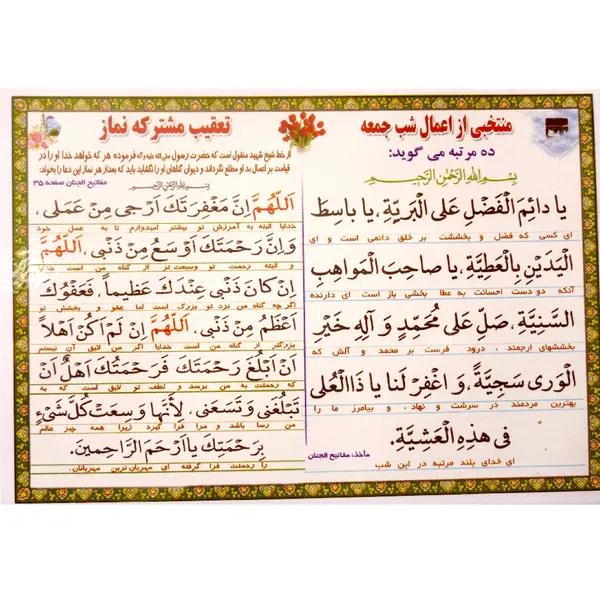 منتخبی از اعمال شب جمعه
ده مرتبه می گوید:
بِسْمِ اللهِ الرَّحْمٰنِ الرَّحِیمِ
یا دائِمَ الْفَضْلِ عَلَی الْبَرِیَّةِ، یا باسِطَ
ای کسی که فضل و بخششت بر خلق دائمی است و ای
الْیَدَیْنِ بِالْعَطِیَّةِ، یا صاحِبَ الْمَواهِبِ
آنکه دو دست احسانت به عطا بخشی باز است ای دارنده
السَّنِیَّةِ، صَلِّ عَلی مُحَمَّدٍ وَ آلِهِ خَیْرِ
بخششهای ارجمند، درود فرست بر محمد و آلش که
الْوَری سَجِیَّةً، وَ اغْفِرْ لَنا یا ذَا الْعُلی
بهترین مردمند در سرشت و نهاد، و بیامرز ما را
فی هذِهِ الْعَشِیَّةِ.
ای خدای بلند مرتبه در این شب
مأخذ: مفاتیح الجنان
تعقیب مشترکه نماز
از خط شیخ شهید منقول است که حضرت رسول صلی الله علیه و آله فرموده هر که خواهد خدا او را در
قیامت بر اعمال بد او مطلع نگرداند و دیوان گناهان او را نگشاید باید که بعد از هر نماز این دعا را بخواند:
مفاتیح الجنان صفحه ۳۵
بِسْمِ اللهِ الرَّحْمٰنِ الرَّحِیمِ
اَللّهُمَّ اِنَّ مَغْفِرَتَكَ اَرْجی مِنْ عَمَلی،
خدایا البته به آمرزش تو بیشتر امیدوارم تا به عمل خود
وَ اِنَّ رَحْمَتَكَ اَوْسَعُ مِنْ ذَنْبی، اَللّهُمَّ
و البته رحمت تو وسیعت تر از گناه من است خدایا
اِنْ كانَ ذَنْبی عِنْدَكَ عَظیماً، فَعَفْوُكَ
اگر چه گناه من نزد تو بزرگ است اما عفو و بخشش تو
اَعْظَمُ مِنْ ذَنْبی، اَللّهُمَّ اِنْ لَمْ اَكُنْ اَهْلاً
بزرگتر از گناه من است خدایا اگر من لایق آن نیستم
اَنْ اَبْلُغَ رَحْمَتَكَ فَرَحْمَتُكَ اَهْلٌ اَنْ
که رحمتت به من برسد و لطف تو لایق است که به
تَبْلُغَنی وَ تَسَعَنی، لِأَنَّها وَسِعَتْ كُلَّ شَیْءٍ
من رسا باشد و مرا فرا گیرد زیرا همه چیز عالم
بِرَحْمَتِكَ یا اَرْحَمَ الرَّاحِمینَ.
را رحمتت فرا گرفته ای مهربان ترین مهربانان.